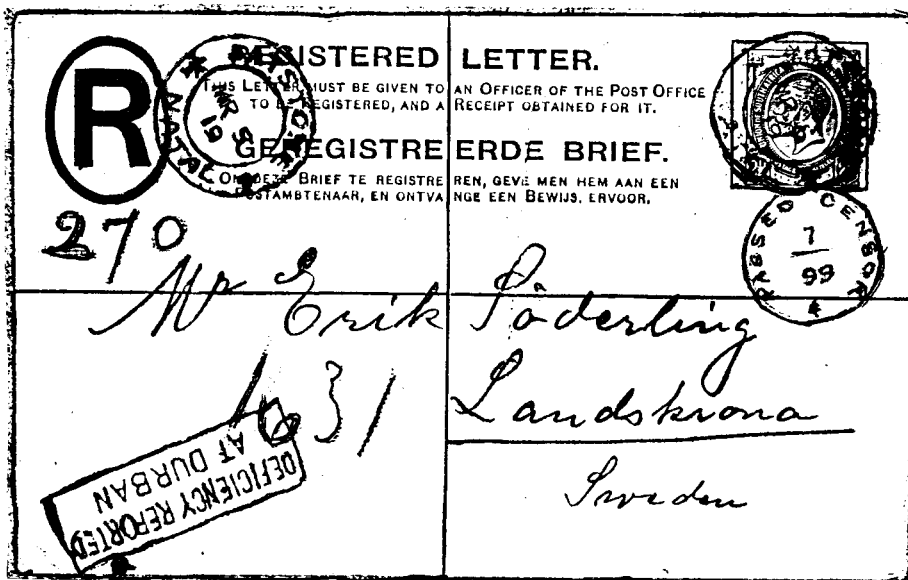 R
REGISTERED LETTER.
THIS LETTER MUST BE GIVEN TO AN OFFICER OF THE POST OFFICE
TO BE REGISTERED, AND A RECEIPT OBTAINED FOR IT.
GEREGISTREERDE BRIEF.
OM DEZE BRIEF TE REGISTREREN, GEVE MEN HEM AAN EEN
POSTAMBTENAAR, EN ONTVANGE EEN BEWIJS. ERVOOR.
NATAL
PASSED CENSOR
7
99
4
270
Mr Erik Söderling
Landskrona
Sweden
DEFICIENCY REPORTED
AT DURBAN